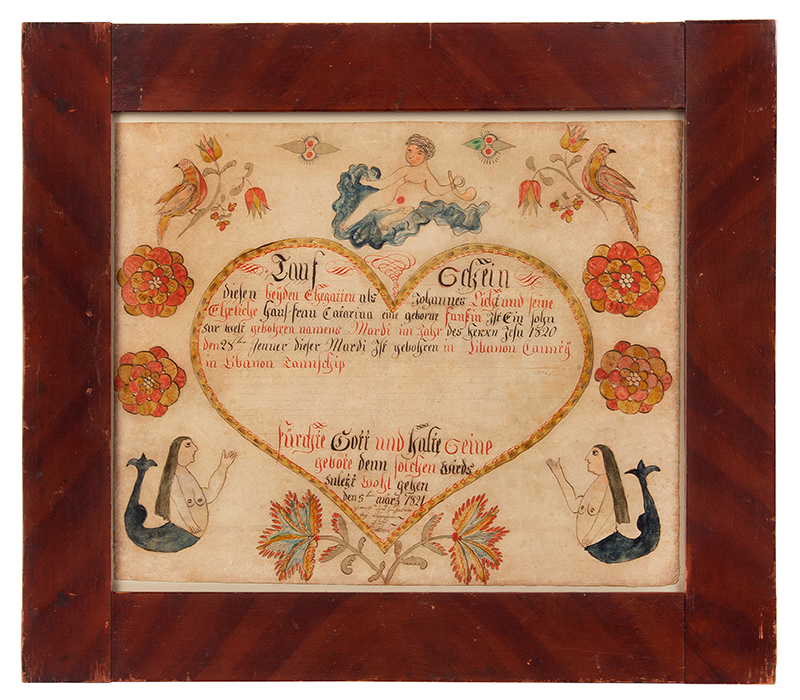 Tauf Schein
diesen beyden Ehegatten als Johannes Licht und seine
Ehrliche Hauß-frau Catarina eine geborne funkin Ist Ein sohn
zur welt gebohren namens Mardi im Jahr des Herrn Jesu 1820
den 28ten Jenner dieser Mardi Ist gebohren in Libanon Caunty
in Libanon Taunschip
fürchte Gott und Halte Seine
gebote denn solchen wirds
zuletzt wohl gehen
den 5ten märz 1821